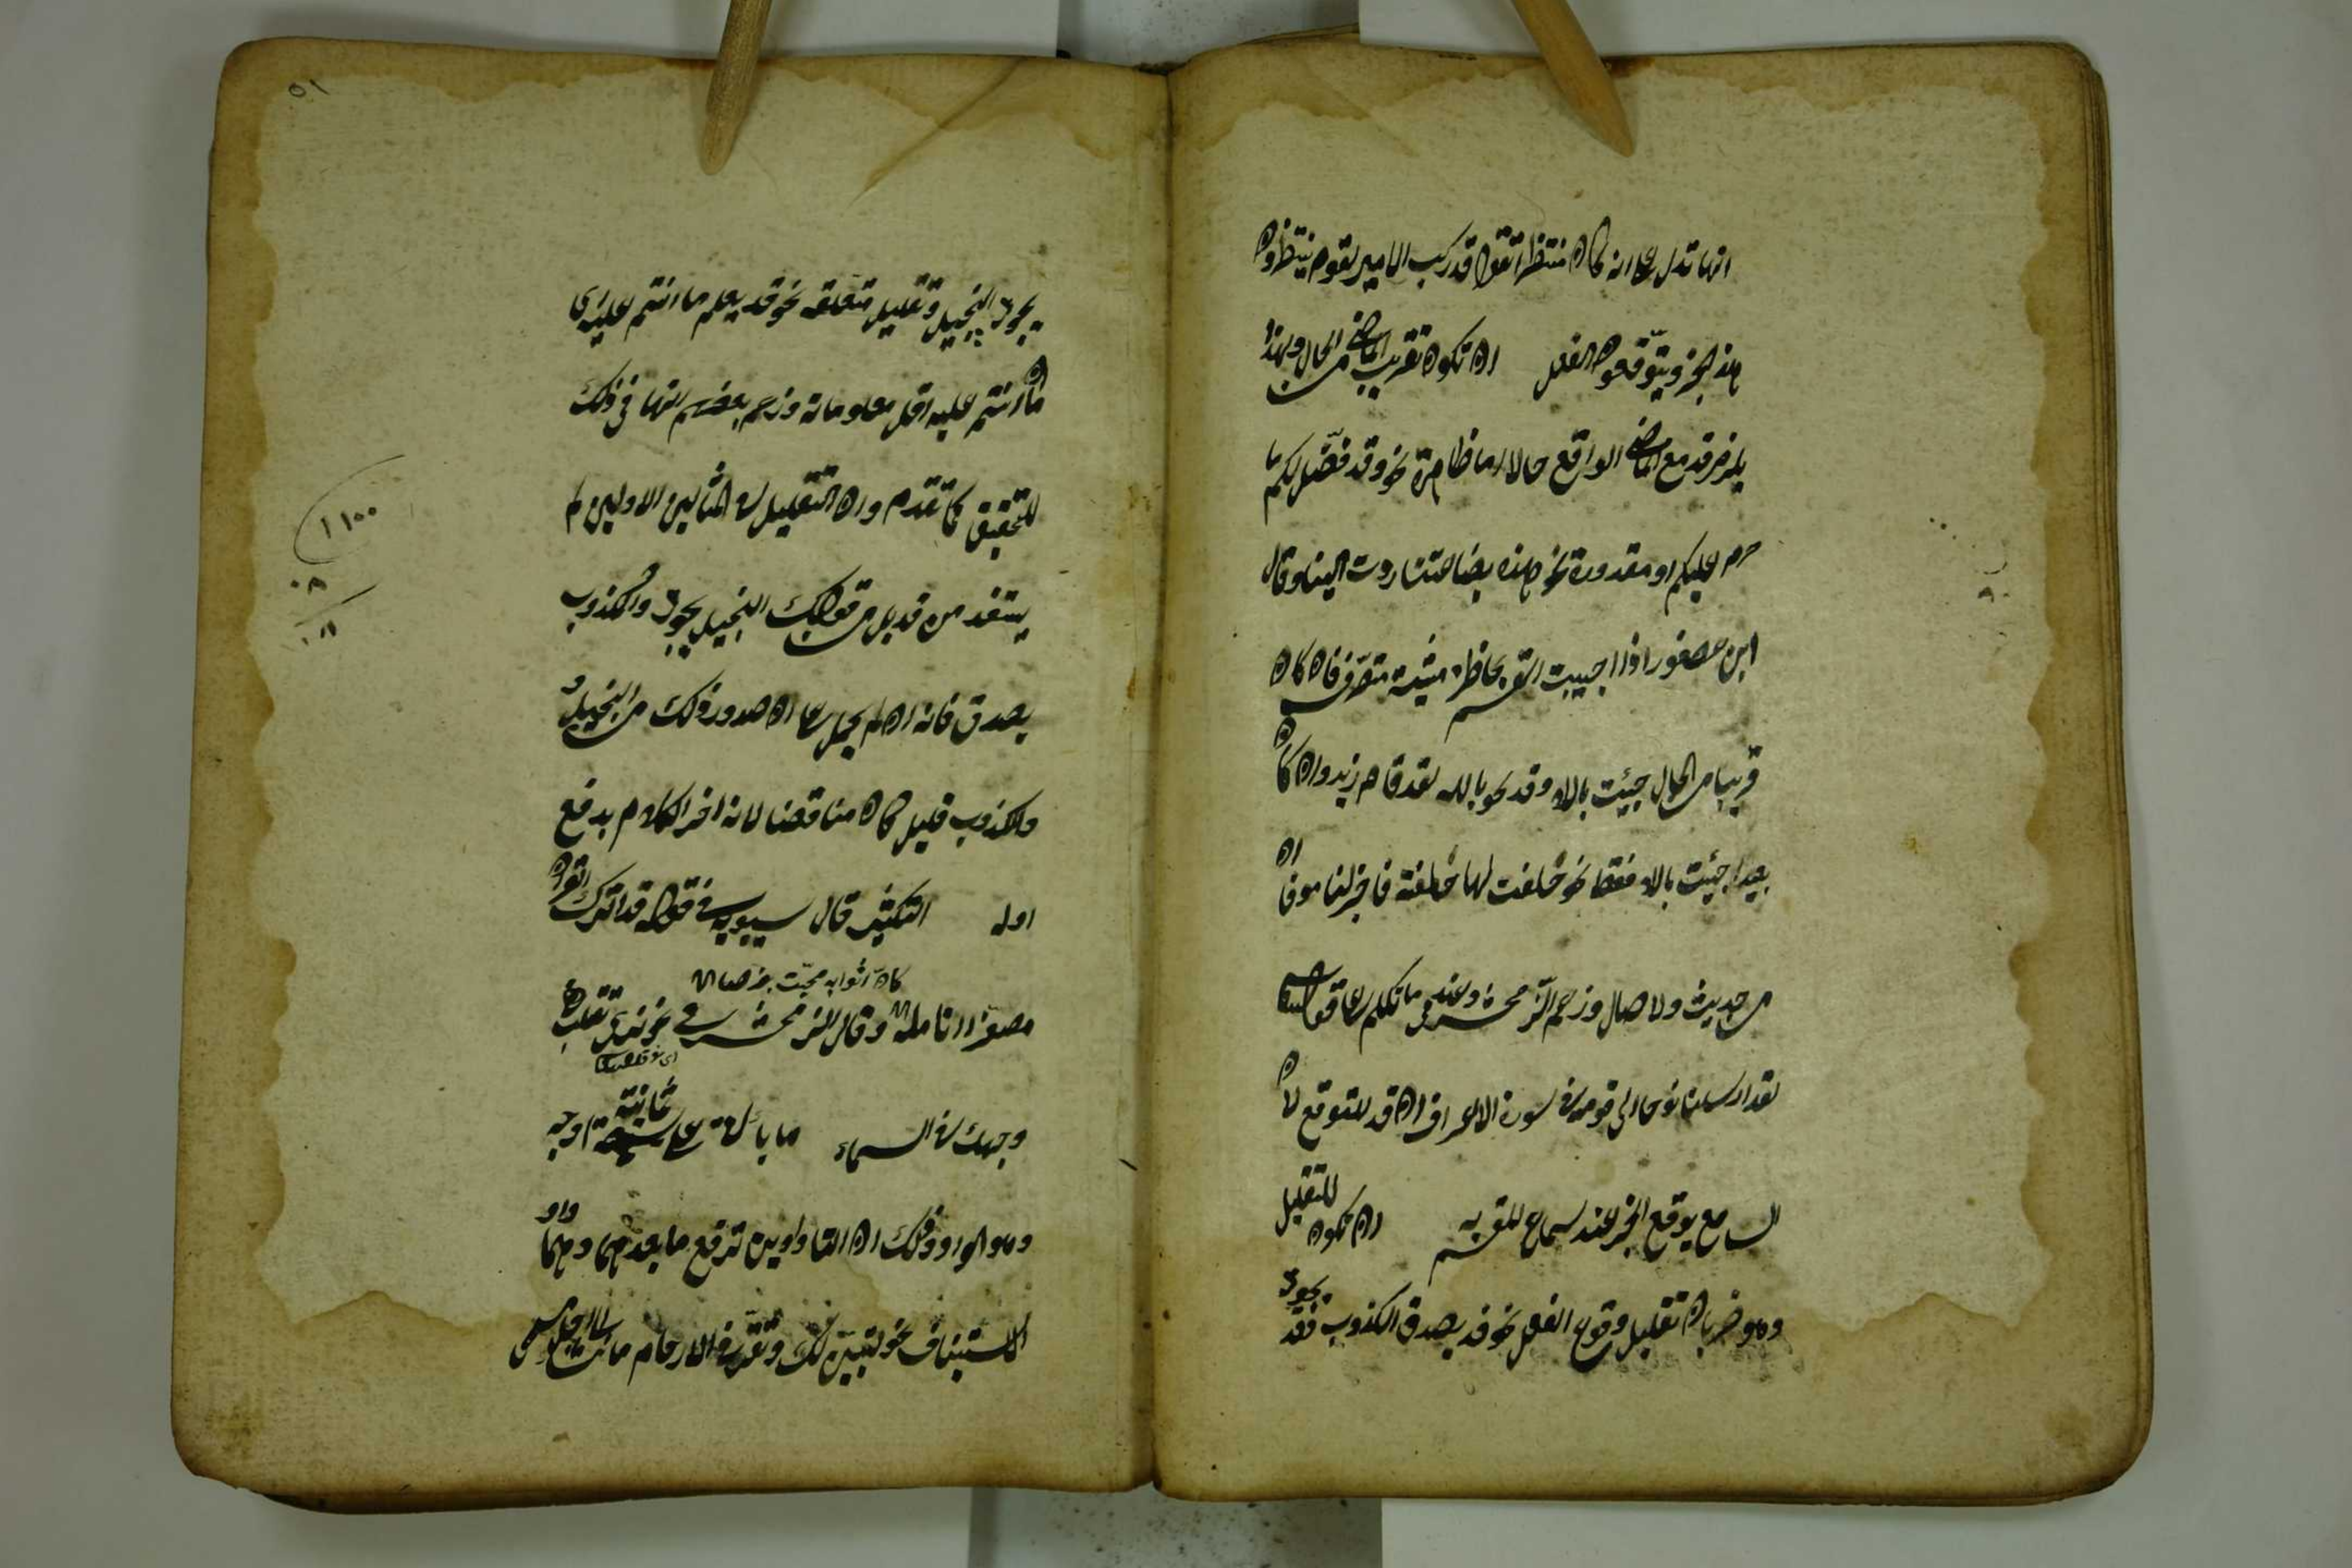 انها تدل على انه كان منتظرا تقول قد ركب الامير لقوم ينتظرون
هذا الخبر ويتوقعون الفعل ان تكون تقريب الماضي من الحال ولهذا
يلزم قد مع الماضي الواقع حالا اما ظاهرة نحو وقد فصّل لكم ما
حرم عليكم او مقدورة نحو هذه بضاعتنا ردت الينا وقال
ابن عصفور اذا اجيبت القسم بماض مثبت متصرف فان كان
قريبا من الحال جيئت بالام وقد نحو بالله لقد قام زيد وان كان
بعيدا جئت بالام فقط نحو حلفت لها حلفة فاجر لناموفا ان
من حديث ولا صال وزعم الزمخشري وعند ما تكلم على قوله تعالى
لقد ارسلنا نوحا الى قومه في سورة الاعراف ان قد للتوقع لان
السامع يتوقع الخبر عند سماع المقسم به ان تكون للتقليل
وهو ضربان تقليل وقوع الفعل نحو قد يصدق الكذوب فقد يجود
يجود البخيل وتقليل متعلقه نحو قد يعلم ما انتم عليه اى
ان ما انتم عليه اقل معلوماته وزعم بعضهم انها في ذلك
للتحقيق كما تقدم وان التقليل في المثالين الاولين لم
يستفد من قد بل من قولك البخيل يجود والكذوب
يصدق فانه ان لم يحمل على ان صدور ذلك من البخيل و
والكذوب قليل كان مناقضا لانه اخر الكلام يدفع
اوله التكثير قال سيبويه في قوله قد اترك القرن
كان اثوابه مجّت بفرصاد
مصفرا انامله وقال الزمخشري في نحو قد نرى تقلب
وجهك في السماء ما ياتى على ثمانية اوجه
وهو الواو وذلك ان لنا واوين ترفع ما بعدهما وهما واو
الاستيناف نحو لنبيّن لكم ونقرّ في الارحام ما نشاء الى اجل مسمى
٥١
١١٠٠